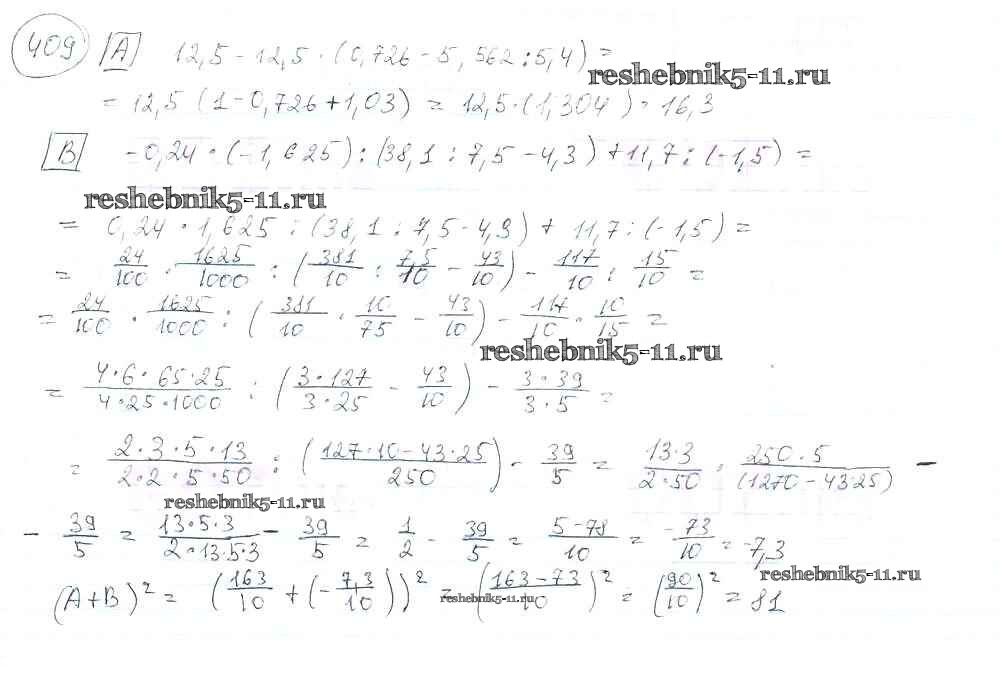 409 А 12,5 - 12,5 · (0,726 - 5,562 : 5,4) =
reshebnik5-11.ru
= 12,5 (1 - 0,726 + 1,03) = 12,5 · (1,304) = 16,3
В -0,24 · (-1,625) : (38,1 : 7,5 - 4,3) + 11,7 : (-1,5) =
reshebnik5-11.ru
= 0,24 · 1,625 : (38,1 : 7,5 - 4,3) + 11,7 : (-1,5) =
= 24/100 · 1625/1000 : (381/10 : 7,5/10 - 43/10) - 117/10 : 15/10 =
= 24/100 · 1625/1000 : (381/10 · 10/75 - 43/10) - 117/10 · 10/15 =
reshebnik5-11.ru
= 4·6·65·25/4·25·1000 : (3·127/3·25 - 43/10) - 3·39/3·5 =
= 2·3·5·13/2·2·5·50 : (127·10-43·25/250) - 39/5 = 13·3/2·50 · 250·5/(1270-43·25) -
reshebnik5-11.ru
- 39/5 = 13·5·3/2·13·5·3 - 39/5 = 1/2 - 39/5 = 5-78/10 = -73/10 = -7,3
reshebnik5-11.ru
(А+В)² = (163/10 + (-7,3/10))² = (163-73/10)² = (90/10)² = 81
reshebnik5-11.ru